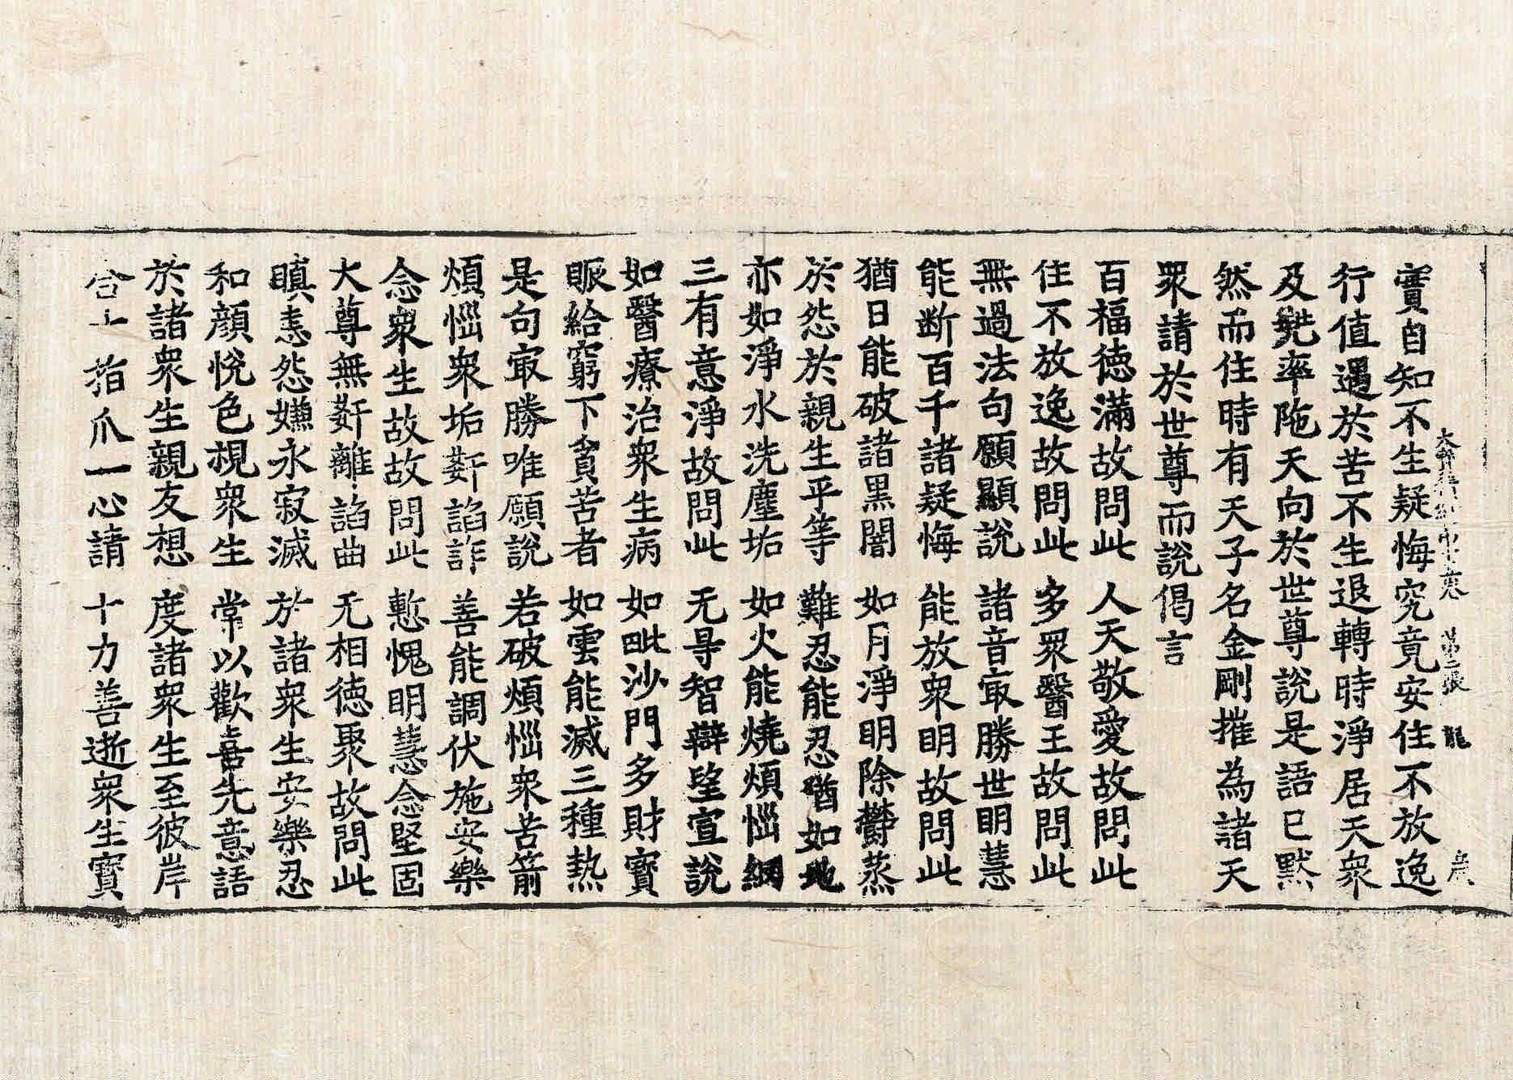 大 第二張 龍
實自知不生疑悔究竟安住不放逸
行值遇於苦不生退轉時淨居天衆
及兠率陁天向於世尊說是語已默
然而住時有天子名金剛摧為諸天
衆請於世尊而說偈言
百福徳滿故問此 人天敬愛故問此
住不放逸故問此 多衆醫王故問此
無過法句願顯說 諸音㝡勝世明慧
能断百千諸疑悔 能放衆明故問此
猶日能破諸黑闇 如月淨明除鬱蒸
於怨於親生平等 難忍能忍猶如地
亦如淨水洗塵垢 如火能燒煩惱網
三有意淨故問此 无㝵智辯堅宣說
如醫療治衆生病 如毗沙門多財寶
賑給窮下貧苦者 如雲能滅三種熱
是句㝡勝唯願說 若破煩惱衆苦箭
煩惱衆垢姧諂詐 善能調伏施安樂
念衆生故故問此 慙愧明慧念堅固
大尊無姧離諂曲 无相徳聚故問此
瞋恚怨嫌永寂滅 於諸衆生安樂忍
和顔悅色視衆生 常以歡喜先意語
於諸衆生親友想 度諸衆生至彼岸
合十指爪一心請 十力善逝衆生寶